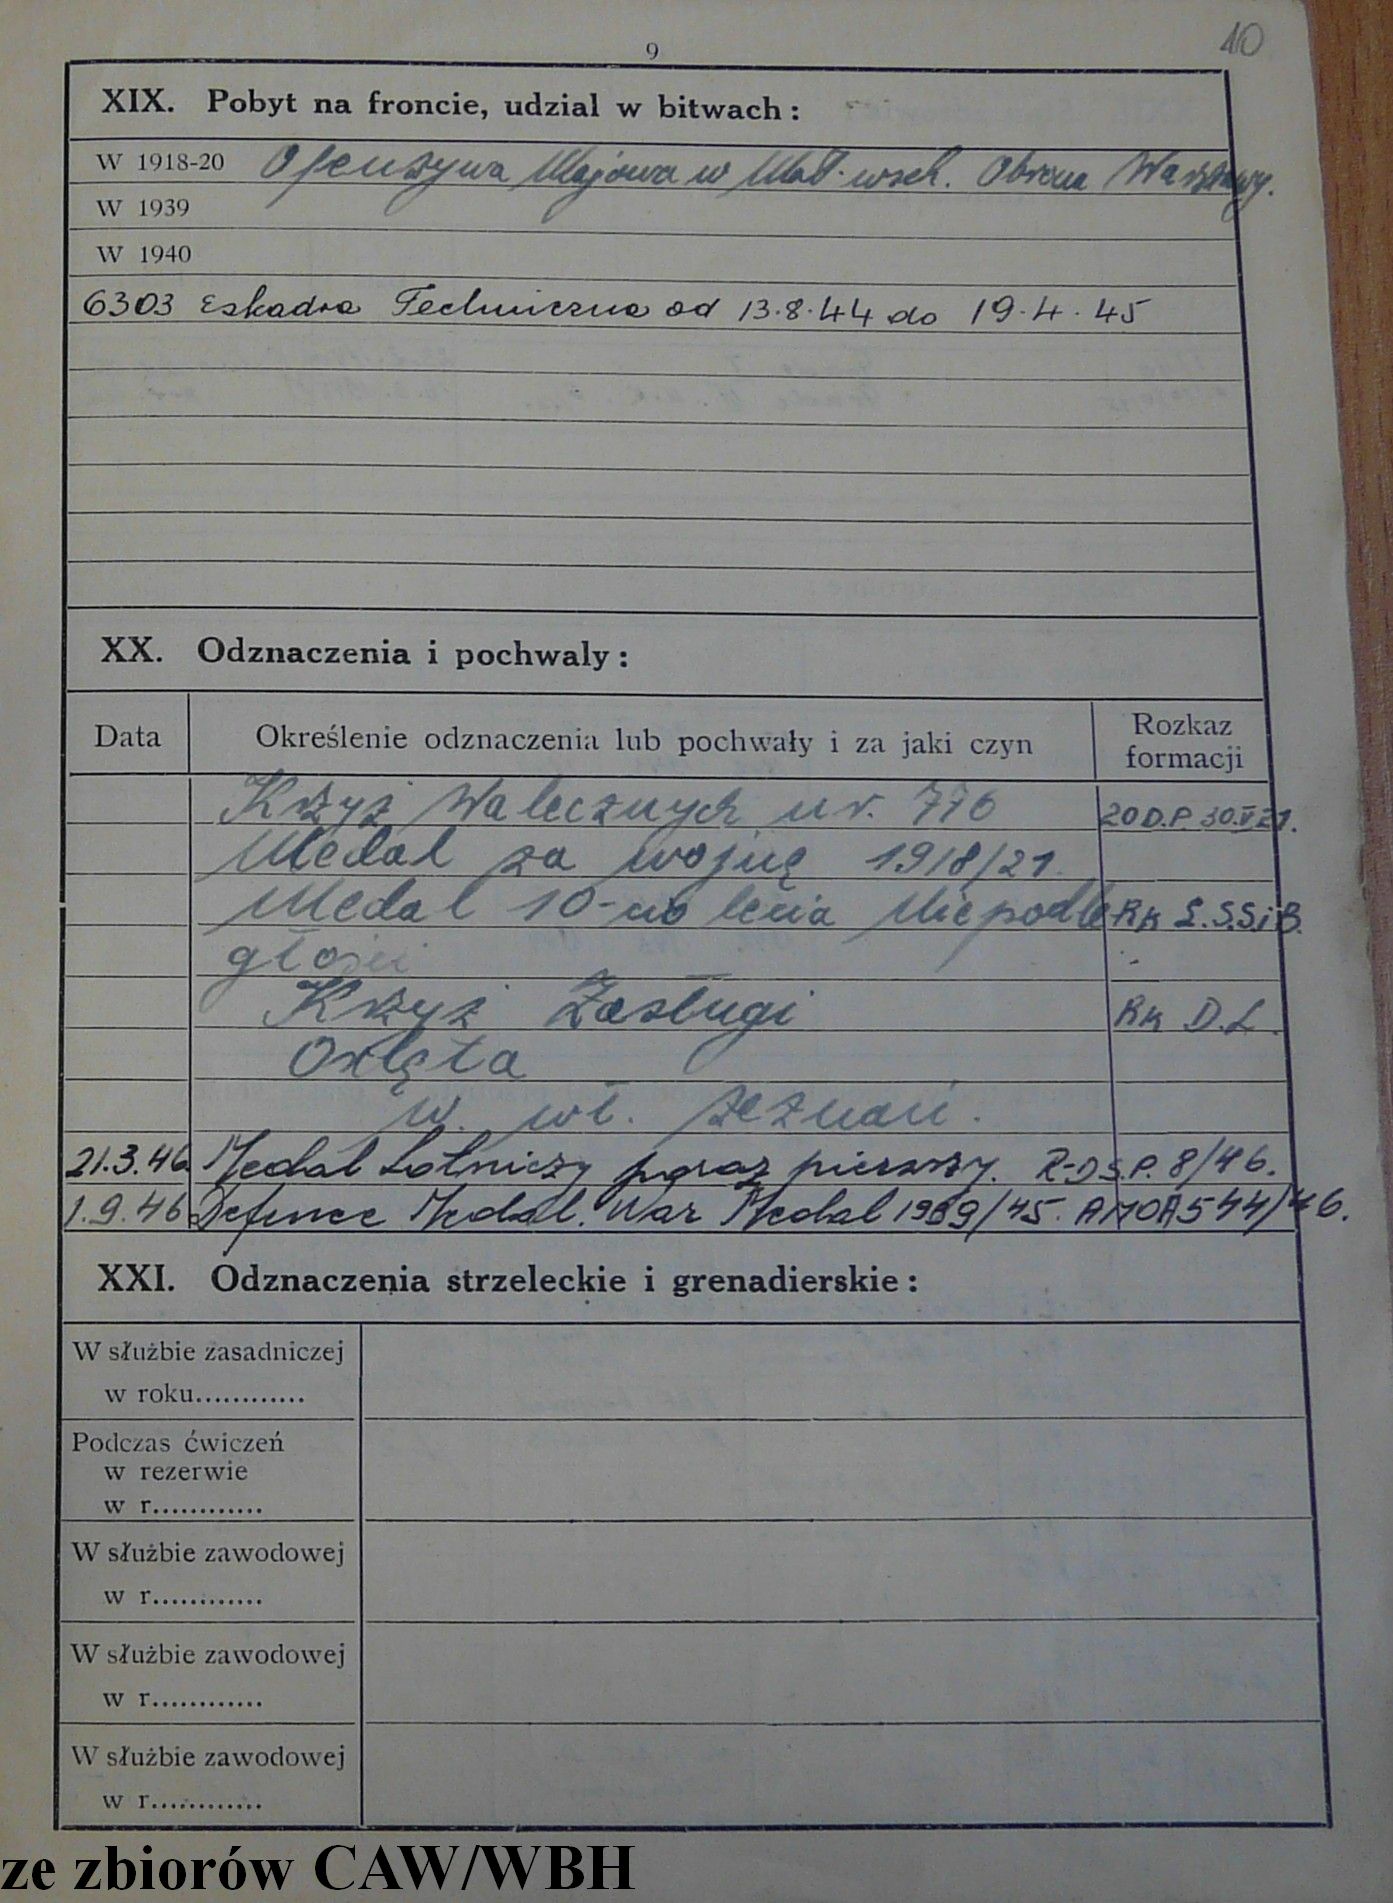 10
9
XIX. Pobyt na froncie, udzial w bitwach :
W 1918-20 Ofenzywa Majowa w Mał. wsch. Obrona Warszawy.
W 1939
W 1940
6303 Eskadra Techniczna od 13.8.44 do 19.4.45
XX. Odznaczenia i pochwaly :
Data Określenie odznaczenia lub pochwały i za jaki czyn Rozkaz formacji
Krzyż Walecznych nr. 776 20 D.P. 30.V 21.
Medal za wojnę 1918/21.
Medal 10-cio lecia Niepodle RK S.S.S.i B.
głości
Krzyż Zasługi RK D.L.
Orlęta
w. wł. zeznań.
21.3.46 Medal Lotniczy poraz pierwszy. R-D.S.P. 8/46.
1.9.46 Defence Medal. War Medal 1939/45. AMOA544/46.
XXI. Odznaczenia strzeleckie i grenadierskie :
W służbie zasadniczej
w roku............
Podczas ćwiczeń
w rezerwie
w r............
W służbie zawodowej
w r............
W służbie zawodowej
w r............
W służbie zawodowej
w r............
ze zbiorów CAW/WBH